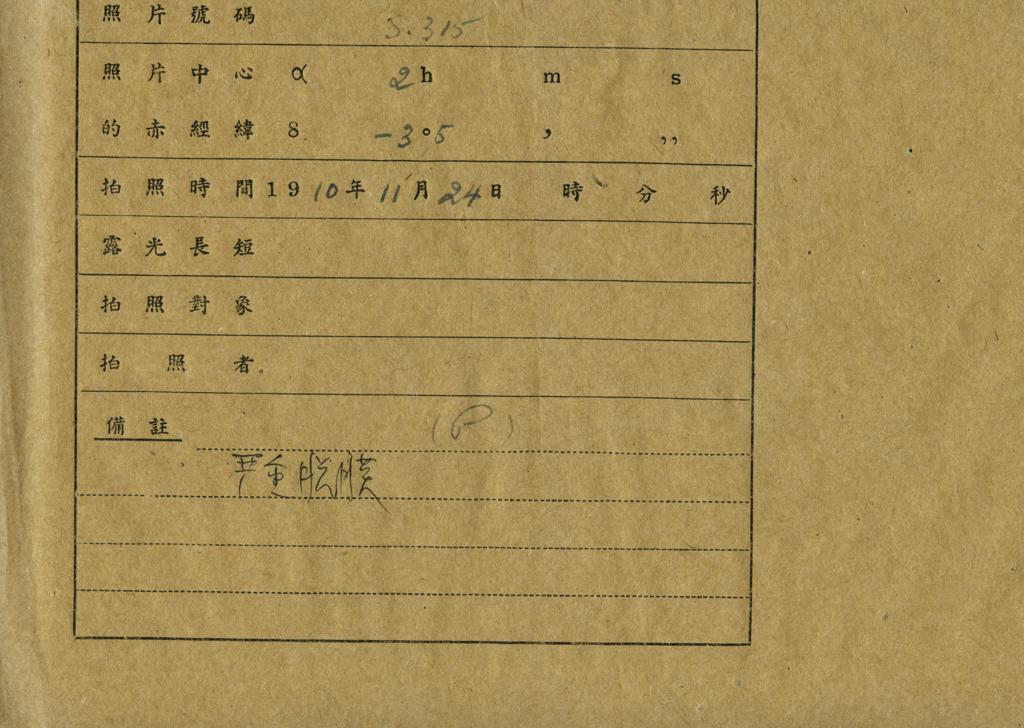 照片號碼 S.315
照片中心 α 2h m s
的赤經緯 δ -3°5 ’ ’’
拍照時間1910年11月24日 時 分 秒
露光長短
拍照對象
拍照者
備註 (P)
严重脱膜